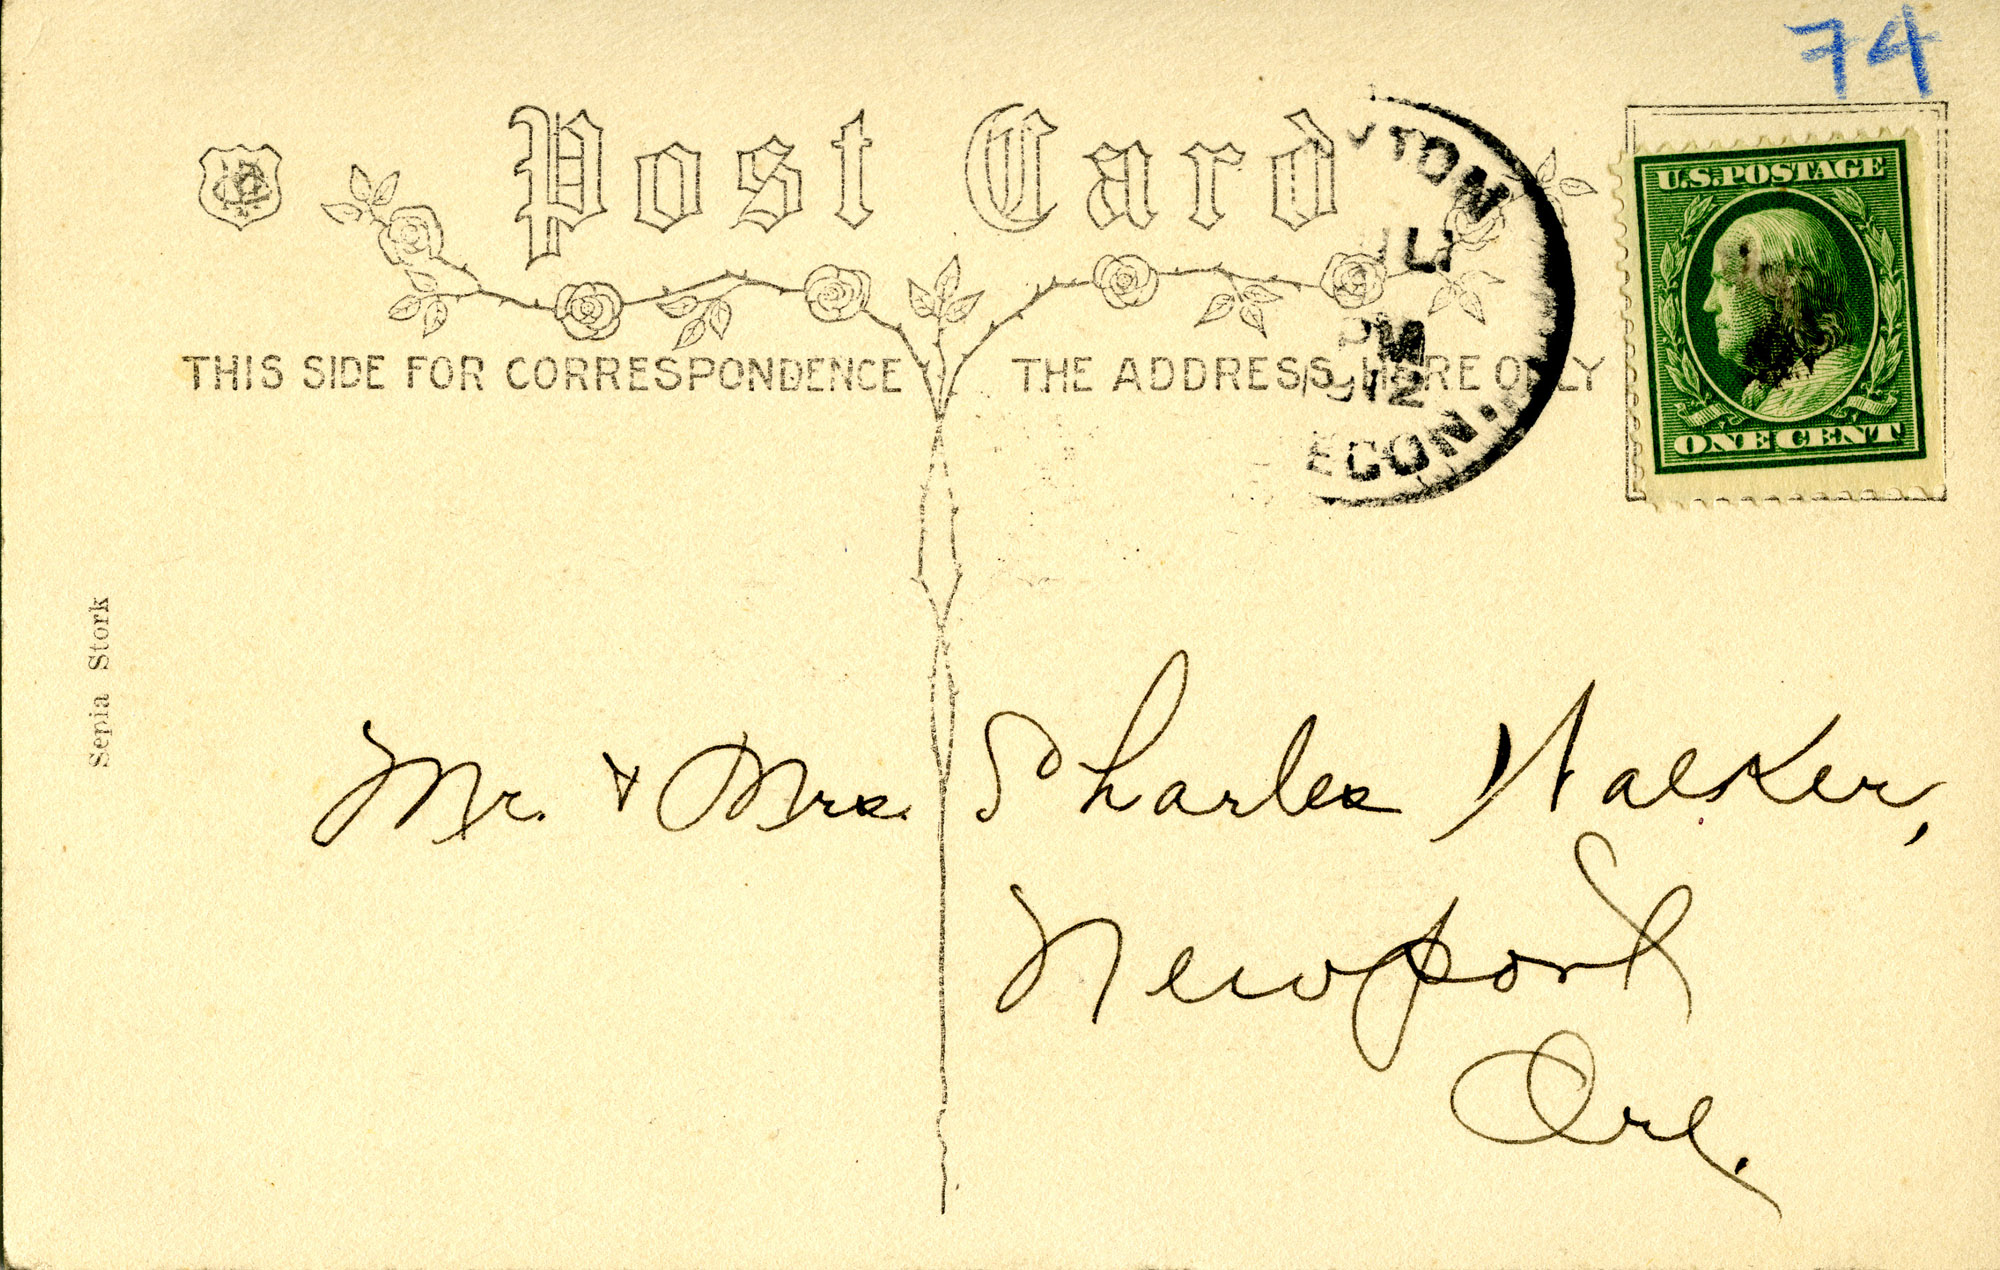 74
Post Card
U.S.POSTAGE
ONE CENT
TON
PM
1912
EGON.
THIS SIDE FOR CORRESPONDENCE
THE ADDRESS HERE ONLY
Sepia Stork
Mr. & Mrs. Charles Walker,
Newport
Ore.